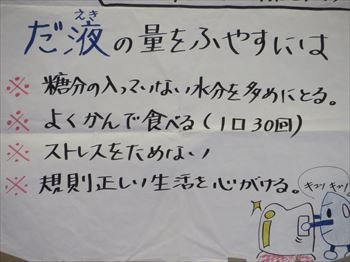 だ液の量をふやすには
えき
※ 糖分の入っていない水分を多めにとる。
※ よくかんで食べる(1口30回)
※ ストレスをためない
※ 規則正しい生活を心がける。
キュッ キュッ